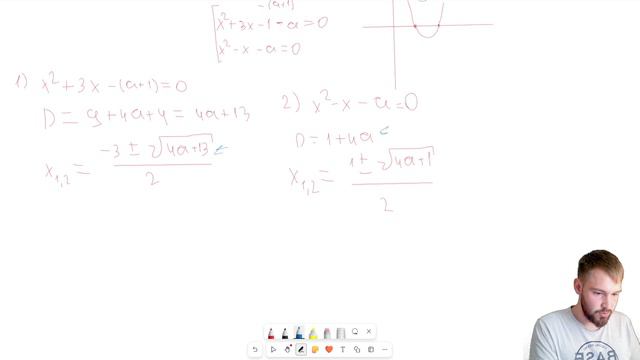 -(a+1)
x²+3x-1-a=0
x²-x-a=0
1) x²+3x-(a+1)=0
D=9+4a+4=4a+13
x₁,₂ = (-3±√(4a+13))/2
2) x²-x-a=0
D=1+4a
x₁,₂ = (1±√(4a+1))/2
BASE